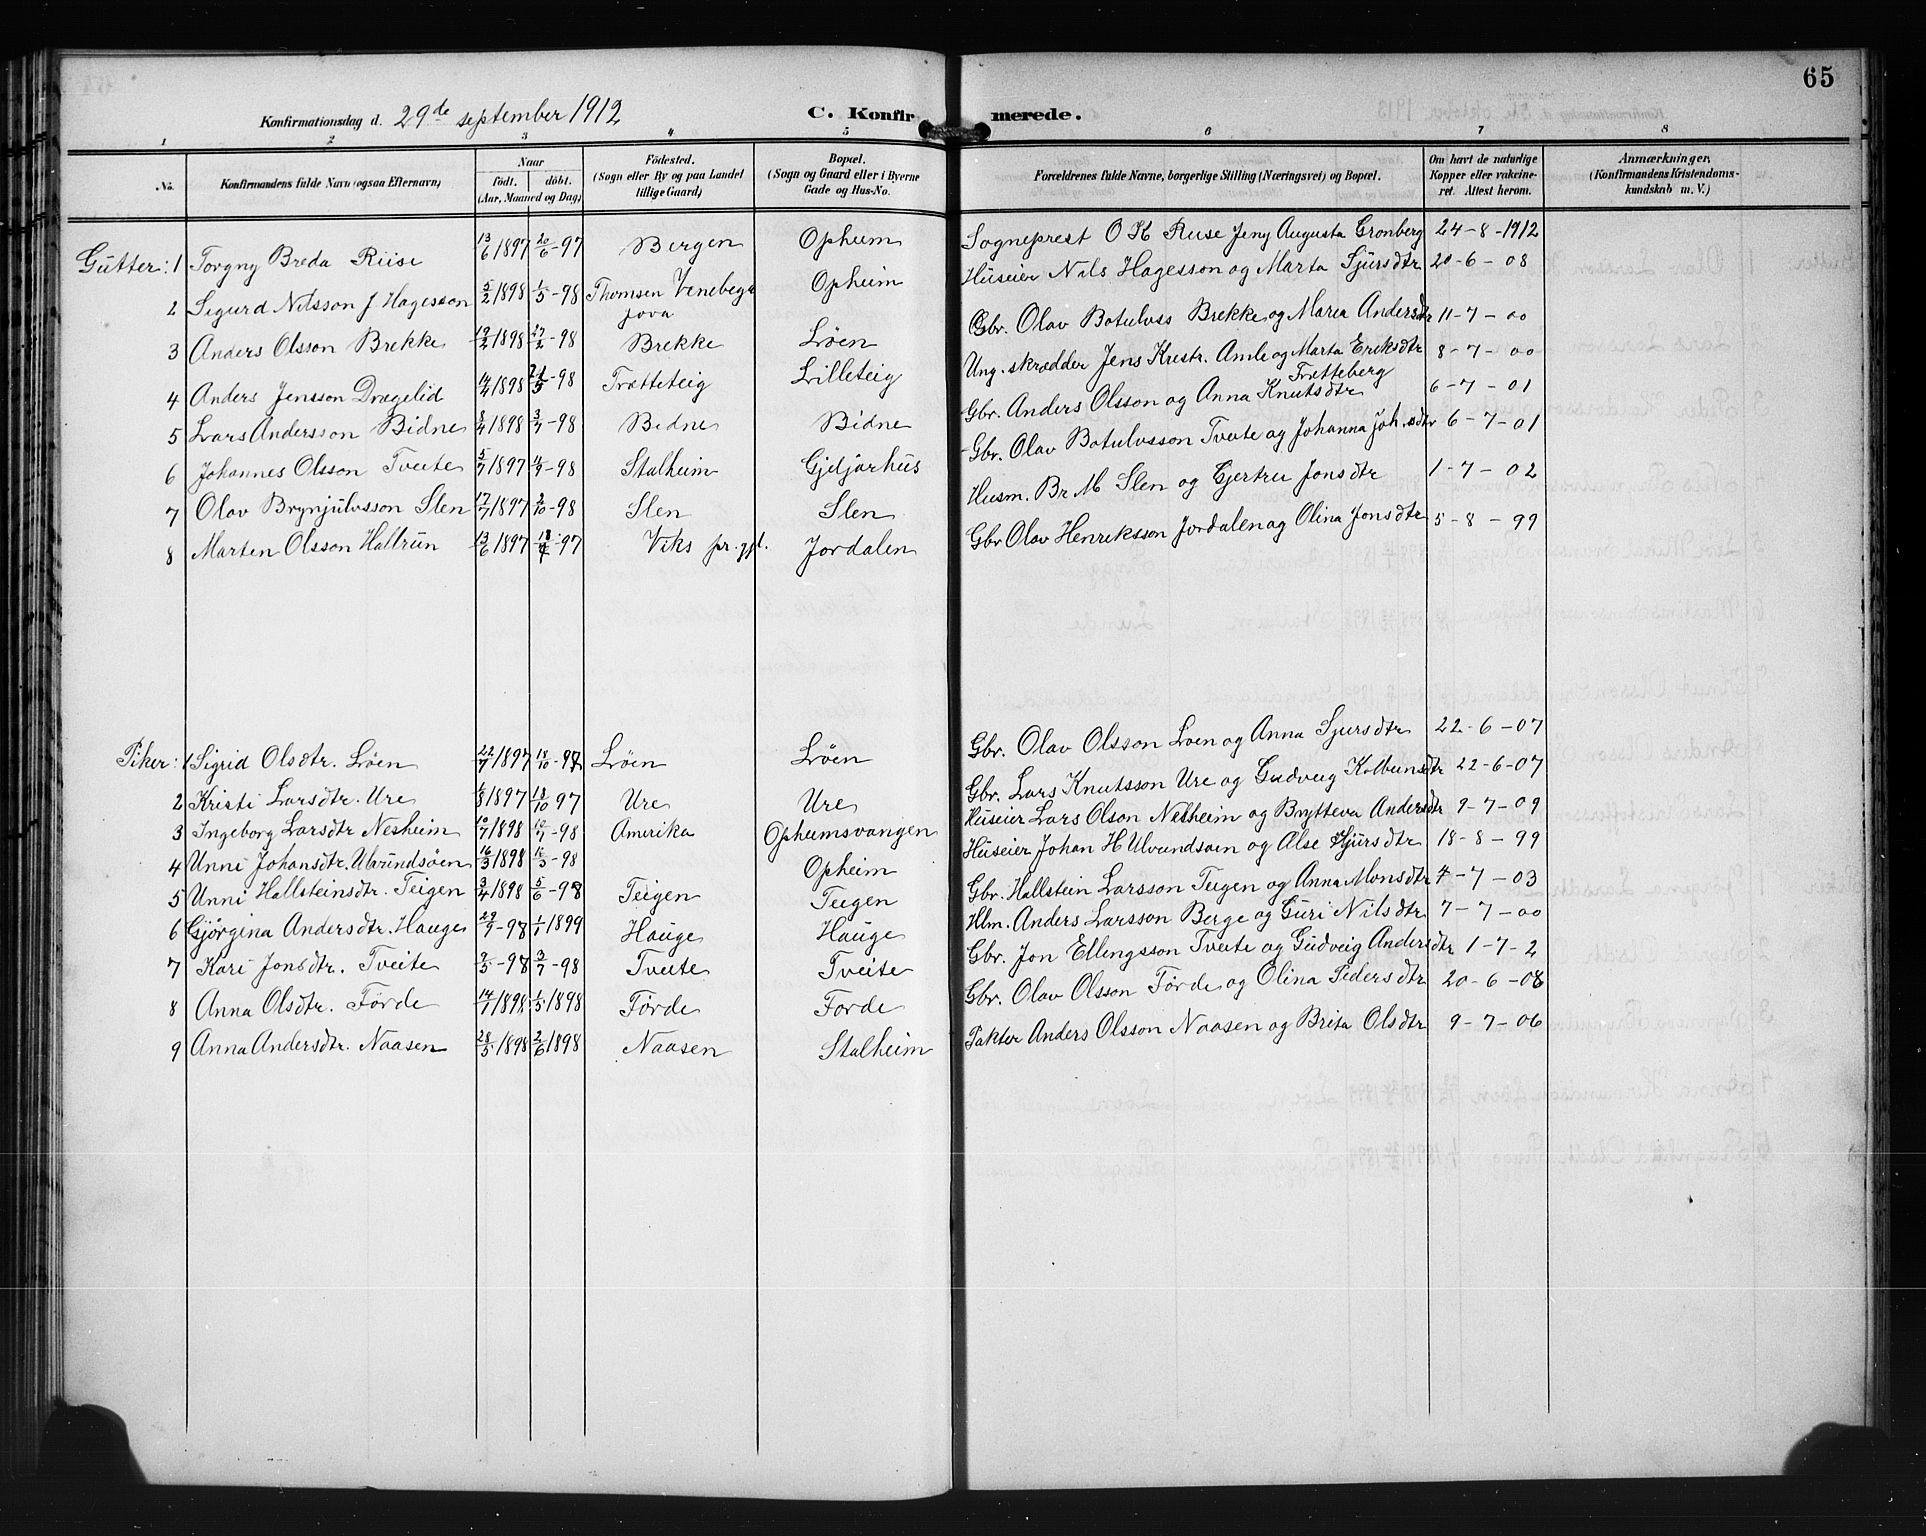 65
Konfirmationsdag d. 29de september 1912 C. Konfirmerede.
1 2 3 4 5 6 7 8
No. Konfirmandens fulde Navn (ogsaa Efternavn). Naar født. døbt. (Aar, Maaned og Dag) Fødested. (Sogn eller By og paa Landet tillige Gaard) Bopæl. (Sogn og Gaard eller i Byerne Gade og Hus-No. Forældrenes fulde Navne, borgerlige Stilling (Næringsvei) og Bopæl. Om havt de naturlige Kopper eller vakcineret. Attest herom. Anmærkninger. (Konfirmandens Kristendomskundskab m. V.)
Gutter: 1 Torgny Breda Riise 13/6 1897 20/6-97 Bergen Opheim Sogneprest O K Riise Jeny Augusta Gronberg 24-8-1912
2 Sigurd Nilsson J Hagesson 5/2 1898 1/5-98 Thomsen Jova Opheim Huseier Nils Hagesson og Marta Sjursdtr 20-6-08
3 Anders Olsson Brekke 1898 -98 Brekke Løen Gbr. Olav Botulvss Brekke og Maria Andersdtr 11-7-00
4 Anders Jensson Drægelid 1898 -98 Trætteteig Lilleteig Ung. skrædder Jens Krestr. Amle og Marta Eriksdtr Trætteberg 8-7-00
5 Lars Andersson Bidne 8/4 1898 3/7-98 Bidne Bidne Gbr. Anders Olsson og Anna Knutsdtr 6-7-01
6 Johannes Olsson Tveite 5/7 1897 -98 Stalheim Gjeljarhus Gbr. Olav Botulvsson Tveite og Johanna Joh.sdtr 6-7-01
7 Olav Brynjulvsson Slen 17/7 1897 2/10-98 Slen Slen Husm. Br M Slen og Gjertru Jonsdtr 1-7-02
8 Marten Olsson Hallrun 13/6 1897 -97 Viks pr. gjl. Jordalen Gbr Olav Henriksson Jordalen og Olina Jonsdtr 5-8-99
Piker: 1 Sigrid Olsdtr. Løen 22/7 1897 18/10-97 Løen Løen Gbr. Olav Olsson Løen og Anna Sjursdtr 22-6-07
2 Kristi Larsdtr. Ure 1897 18/10 97 Ure Ure Gbr. Lars Knutsson Ure og Gudveig Kolbeinsdtr 22-6-07
3 Ingeborg Larsdtr Nesheim 10/7 1898 -98 Amerika Opheimsvangen Huseier Lars Olson Nesheim og Brytteva Andersdtr 9-7-09
4 Unni Johansdtr. Ulvundsøen 16/3 1898 -98 Opheim Huseier Johan H Ulvundsøin og Alse Sjursdtr 18-8-99
5 Unni Hallsteinsdtr. Teigen 3/4 1898 5/6-98 Teigen Teigen Gbr. Hallstein Larsson Teigen og Anna Monsdtr 4-7-03
6 Gjørgina Andersdtr. Hauge 29/9-98 1/1 1899 Hauge Hauge Hlm. Anders Larsson Berge og Guri Nilsdtr 7-7-00
7 Kari Jonsdtr. Tveite 2/5-98 3/7-98 Tveite Tveite Gbr. Jon Ellengsson Tveite og Gudveig Andersdtr 1-7-2
8 Anna Olsdtr. Førde 14/1 1898 1/5 1898 Førde Førde Gbr. Olav Olsson Førde og Olina Pedersdtr 20-6-08
9 Anna Andersdtr. Naasen 28/5 1898 2/6 1898 Naasen Stalheim Pakter Anders Olsson Naasen og Brita Olsdtr 9-7-06